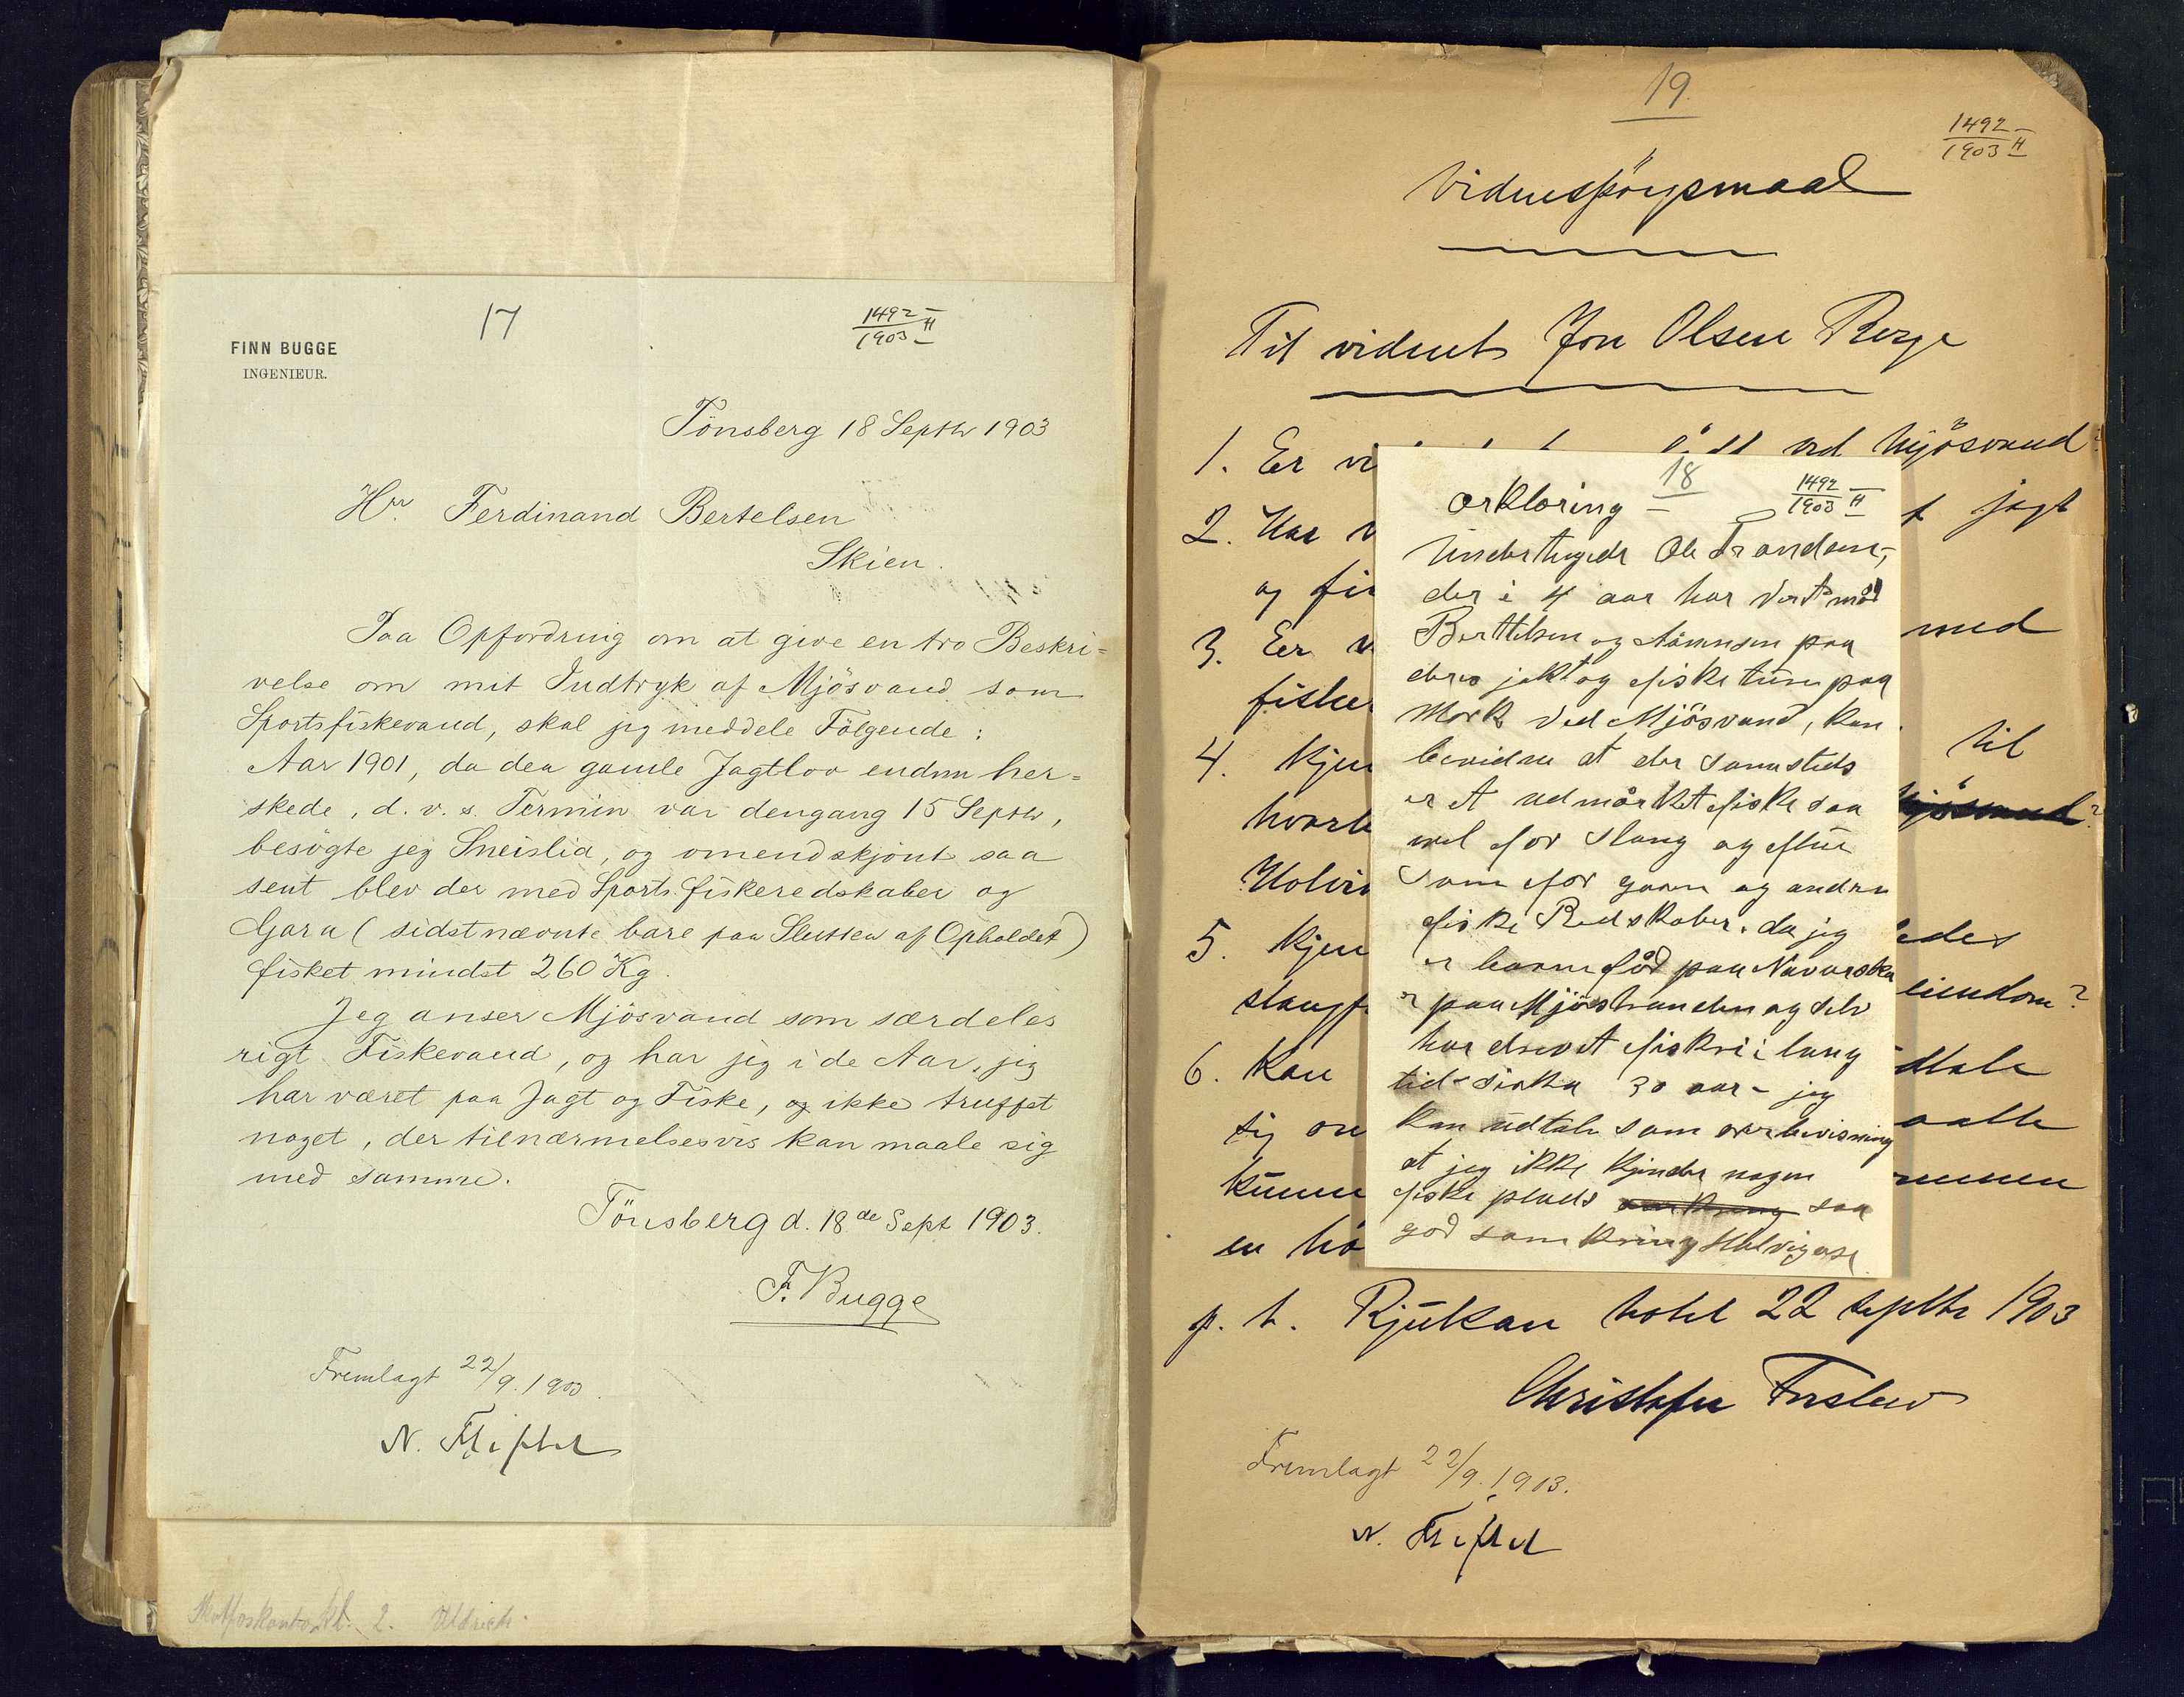 17
1492/1903 II
FINN BUGGE
INGENIEUR.
Tönsberg 18 Septbr 1903
Hrr. Ferdinand Bertelsen
Skien.
Paa Opfordring om at give en tro Beskri=
velse om mit Indtryk af Mjösvand som
Sportsfiskevand, skal jeg meddele Fölgende:
Aar 1901, da den gamle Jagtlov endnu her=
skede, d. v. s. Termin var dengang 15 Septbr,
besögte jeg Sneislia, og omendskjönt saa
sent blev der med Sportsfiskeredskaber og
Garn (sidstnævnte bare paa Slutten af Opholdet)
fisket mindst 260 Kg.
Jeg anser Mjösvand som særdeles
rigt Fiskevand, og har jeg i de Aar, jeg
har været paa Jagt og Fiske, og ikke truffet
noget, der tilnærmelsesvis kan maale sig
med samme.
Tönsberg d. 18de Sept 1903.
F. Bugge
Fremlagt 22/9. 1903.
2.
19
1492/1903 II
Vidnespörgsmaal
Til vidnet Jon Olsen Berge
1. Er vi
ved Mjösvand?
2. Har v
jagt
og fis
3. Er v
med
fiske
4. Kjen
til
hvorle
Mjösvand?
5. Kjen
ledes
stangf
eiendom?
6. Kan
dtale
sig om
aatte
kunne
en
p. t. Rjukan hotel 22 septbr 1903
Fremlagt 22/9. 1903.
18
1492/1903 II
erklæring
Undertegede Ole
der i 4 aar har vert med
Berttelsen og paa
deres jakt og fiske ture paa
Mork ved Mjösvand, kan
bevidne at der sammesteds
er et udmårket fiske saa
vel for stang og flue
som for garn og andre
fiske Redskaber. da jeg
er barne föd paa
paa Mjösstranden og selv
har drevet fiskeri i lang
tid sirka 30 aar - jeg
kan udtale som overbevisning
at jeg ikke kjender nogen
fiske plads saa
god som kring